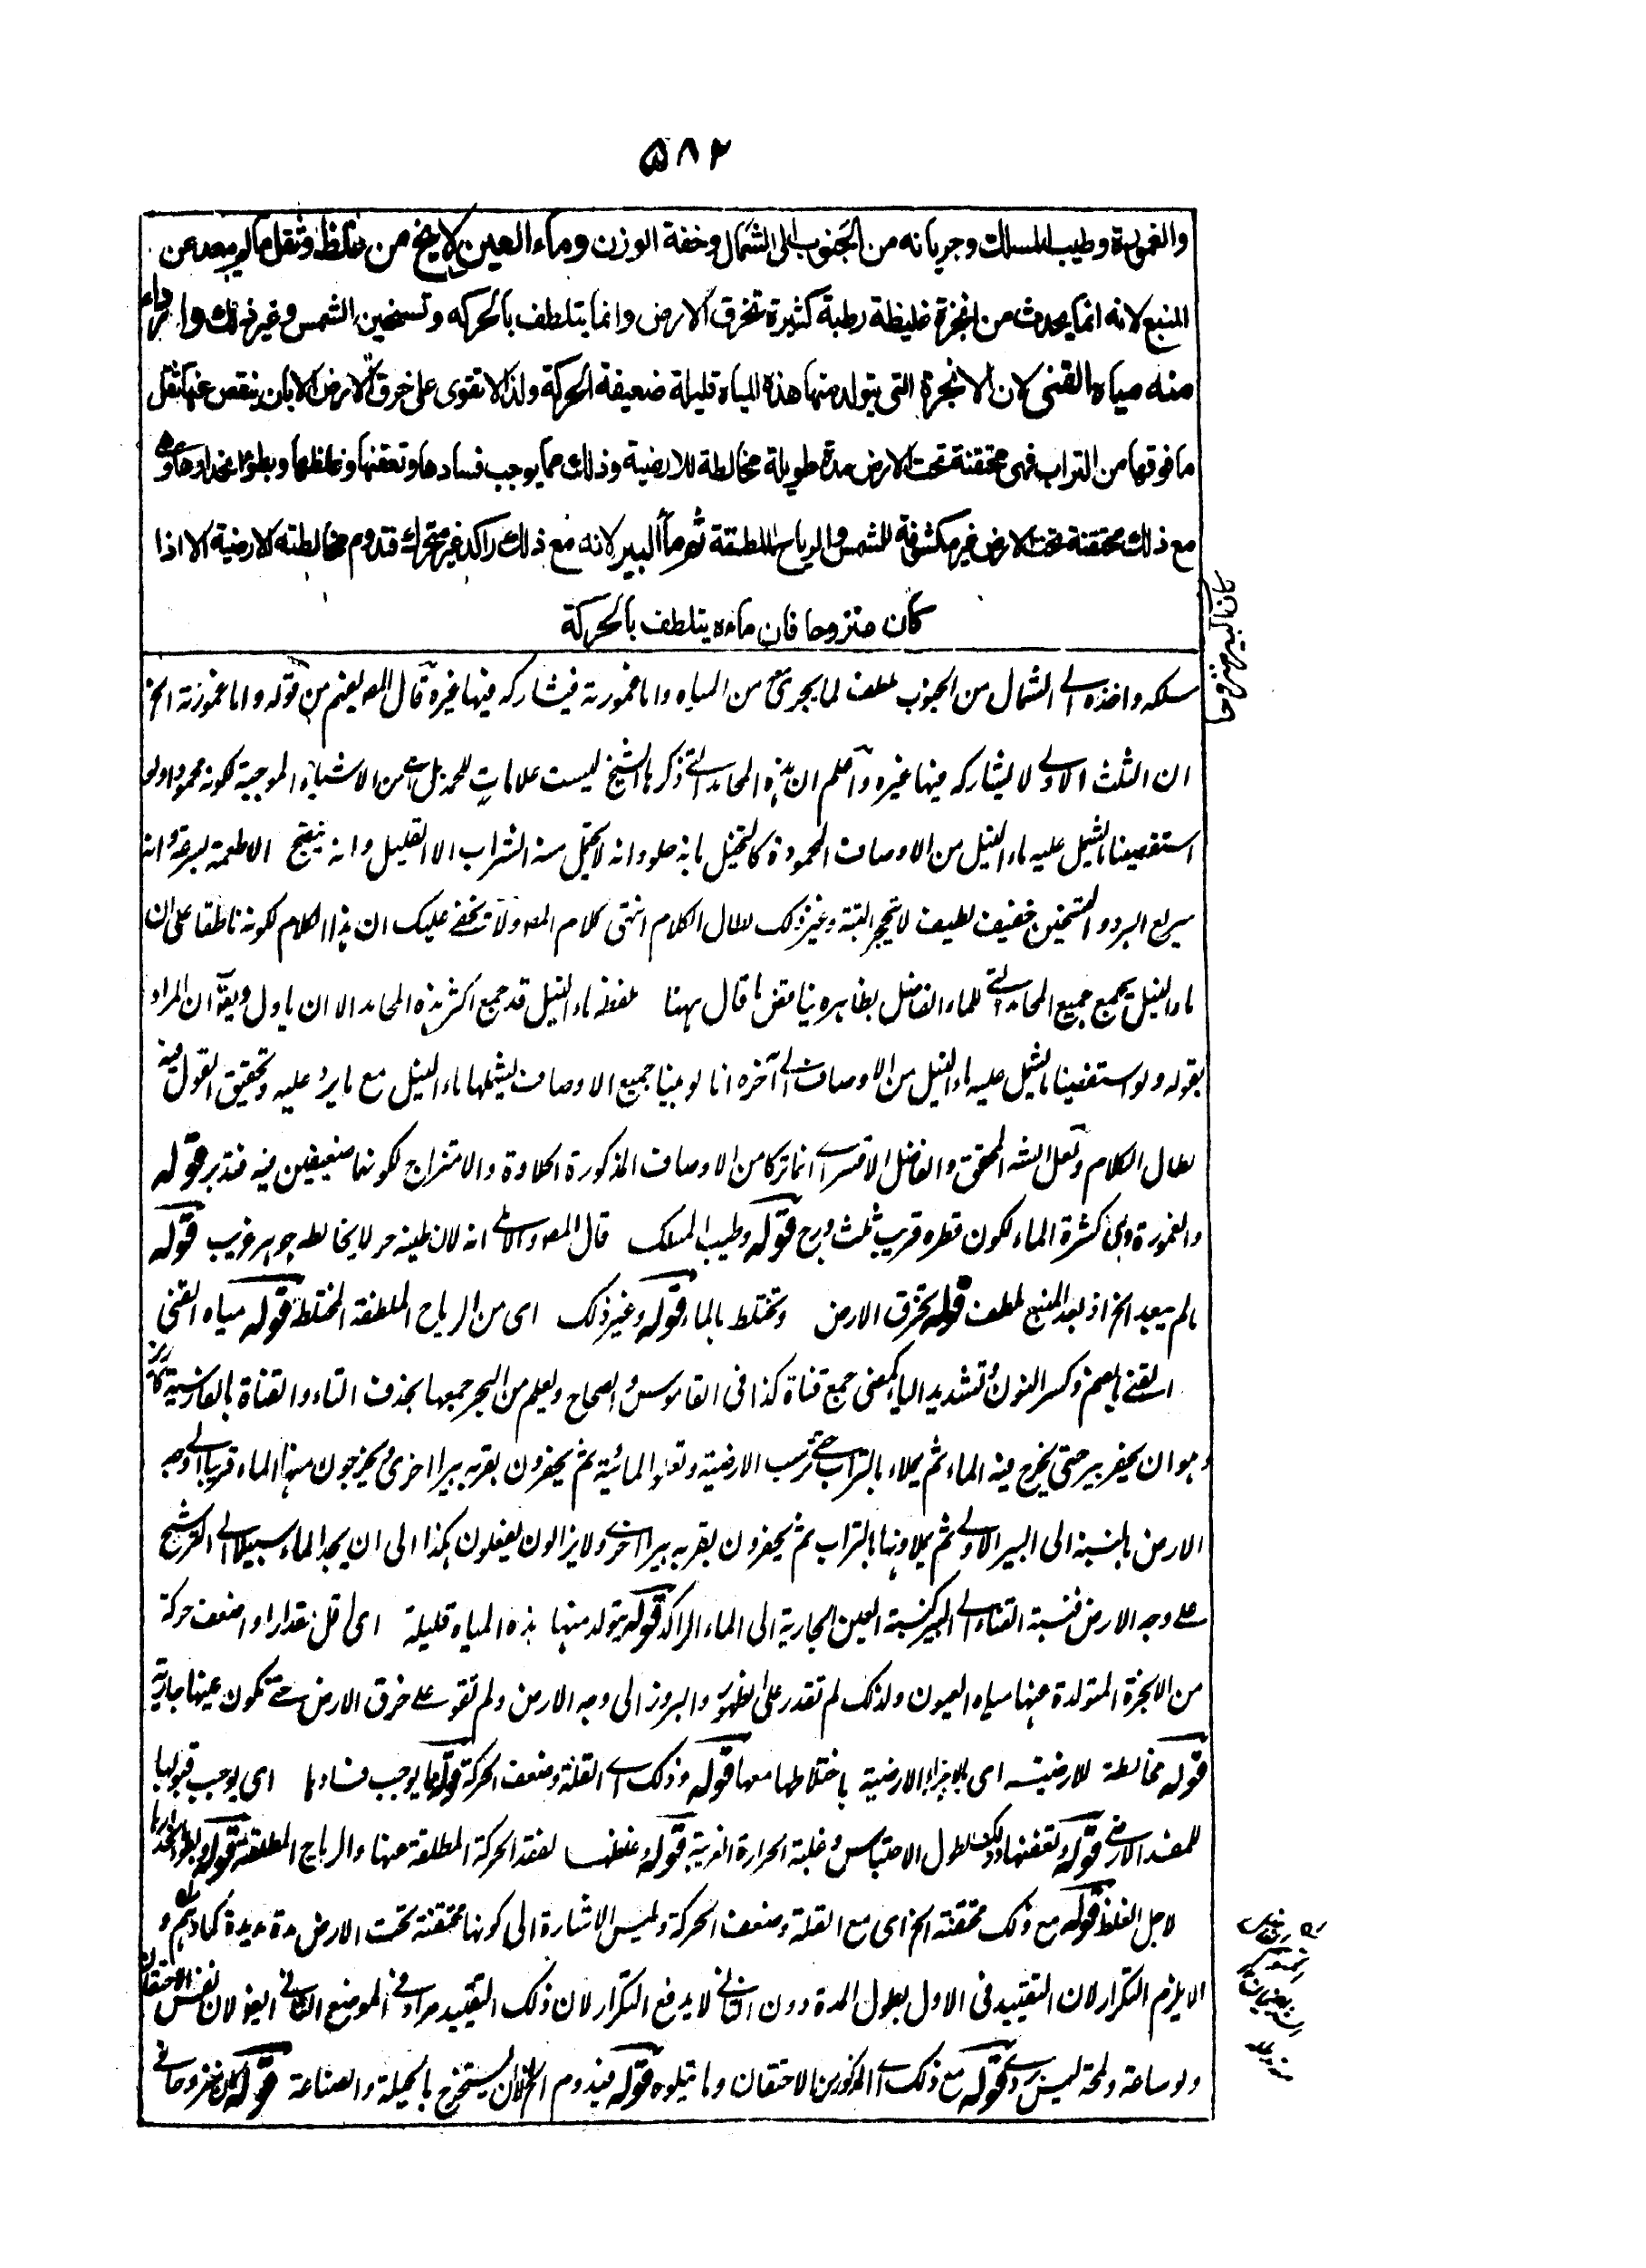 ۵۸۲
والغمورة وطيب المسلك وجريانه من الجنوب الى الشمال وخفة الوزن وماء العين لا يخ من غلظ وثقل مالم يبعد عن
المنبع لانه انما يحدث من ابخرة غليظة رطبة كثيرة تخرق الارض وانما يتلطف بالحركه وتسخين الشمس وغير ذلك واردأ
منه مياه القنى لان الابخرة التى يتولد منها هذه المياه قليلة ضعيفة الحركة ولذا لا تقوى على خرق الارض الا بان ينقص عنها ثقل
ما فوقها من التراب فهى محتقنة تحت الارض مدة طويلة مخالطة للارضية وذلك مما يوجب فسادها وتعفنها وغلظها وبطوء انحدارها وهى
مع ذلك محتقنة تحت الارض غير مكشوفة للشمس والرياح الملطفة ثم ماء البير لانه مع ذلك راكد غير متحرك فتدوم مخالطته للارضية الا اذا
كان منزوحا فان ماءه يتلطف بالحركة
سلكه واخذه الى الشمال من الجنوب ملطف لما يجرى من المياه واما غمورته فيشاركه فيها غيره قال المو يفهم من قوله واما غمورته الخ
ان الثلث الاولى لا يشاركه فيها غيره واعلم ان هذه المحامد التى ذكرها الشيخ ليست علامات للحمد بل هى من الاشياء الموجبة لكونه محمودا ولو
استقصينا ما يشتمل عليه ماء النيل من الاوصاف المحمودة كالتخيل بانه حلو وانه لا يحتمل منه الشراب الا القليل وانه ينضج الاطعمة بسرعة وانه
سريع البرد والتسخين خفيف لطيف لا يتحجر البتة وغير ذلك لطال الكلام انتهى كلام المو ولا يخفى عليك ان هذا الكلام لكونه ناطقا على ان
ماء النيل يجمع جميع المحامد التى للماء الفاضل بظاهره يناقض ما قال ههنا بلفظه ماء النيل قد جمع اكثر هذه المحامد الا ان ياول ويقال ان المراد
بقوله ولو استقصينا ما يشتمل عليه ماء النيل من الاوصاف الى آخره انا لو بينا جميع الاوصاف يشملها ماء النيل مع ما يرد عليه وتحقيق القول فيه
لطال الكلام ولعل الشه المحقق والفاضل الاقسرائى انما تركا من الاوصاف المذكورة الحلاوة والامتزاج لكونهما ضعيفين فيه فتدبر قوله
والغمورة وهى كثرة الماء لكون قطره قريب ثلث فرسخ قوله وطيب المسلك قال المو والآملى انه لان طينه حر لا يخالطه جوهر غريب قوله
مالم يبعد الخ اذ بعد المنبع ملطف قوله تخرق الارض وتختلط بالماء قوله وغير ذلك اى من الرياح الملطفة المختلطة قوله مياه القنى
القنى بالضم وكسر النون وتشديد الياء بمعنى جمع قناة كذا فى القاموس والصحاح ويعلم من البحر جمعها بحذف التاء والقناة بالفارسية كاريز
وهو ان يحفر بير حتى يخرج فيه الماء ثم يملاء بالتراب حتى ترسب الارضية وتعلو المائية ثم يحفرون بقربه بيرا اخرى ويخرجون منها الماء قريبا الى وجه
الارض بالنسبة الى البير الاولى ثم يملاونها بالتراب ثم يحفرون بقربه بيرا اخرى ولا يزالون يفعلون هكذا الى ان يجد الماء سبيلا الى الترشيح
على وجه الارض فنسبة القناة الى البير كنسبة العين الجارية الى الماء الراكد قوله يتولد منها هذه المياه قليلة اى اقل مقدارا واضعف حركة
من الابخرة المتولدة عنها مياه العيون ولذلك لم تقدر على الظهور والبروز الى وجه الارض ولم تقو على خرق الارض حتى تكون عينا جارية
قوله مخالطة للارضية اى بالاجزاء الارضية باختلاطها معها قوله وذلك اى القلة وضعف الحركة قوله مما يوجب فسادها اى يوجب قبولها
للمفسد الارضى قوله وتعفنها وذلك لطول الاحتباس وغلبة الحرارة الغريبة قوله وغلظها لفقد الحركة الملطفة عنها والرياح الملطفة قوله وبطوء انحدارها
لاجل الغلظ قوله مع ذلك محتقنة الخ اى مع القلة وضعف الحركة وليس الاشارة الى كونها محتقنة تحت الارض مدة مديدة كما وهم و
الا يلزم التكرار لان التقييد فى الاول بطول المدة دون الثانى لا يدفع التكرار لان ذلك التقييد مراد فى الموضع الثانى ايضا لان نفس الاحتقان
ولو ساعة ولمحة ليس بردى قوله مع ذلك اى المذكور من الاحتقان وما يتلوه قوله فيدوم الخ لان يستخرج بالحيلة والصناعة قوله كان منزوحا فى
كان البير منزوحا